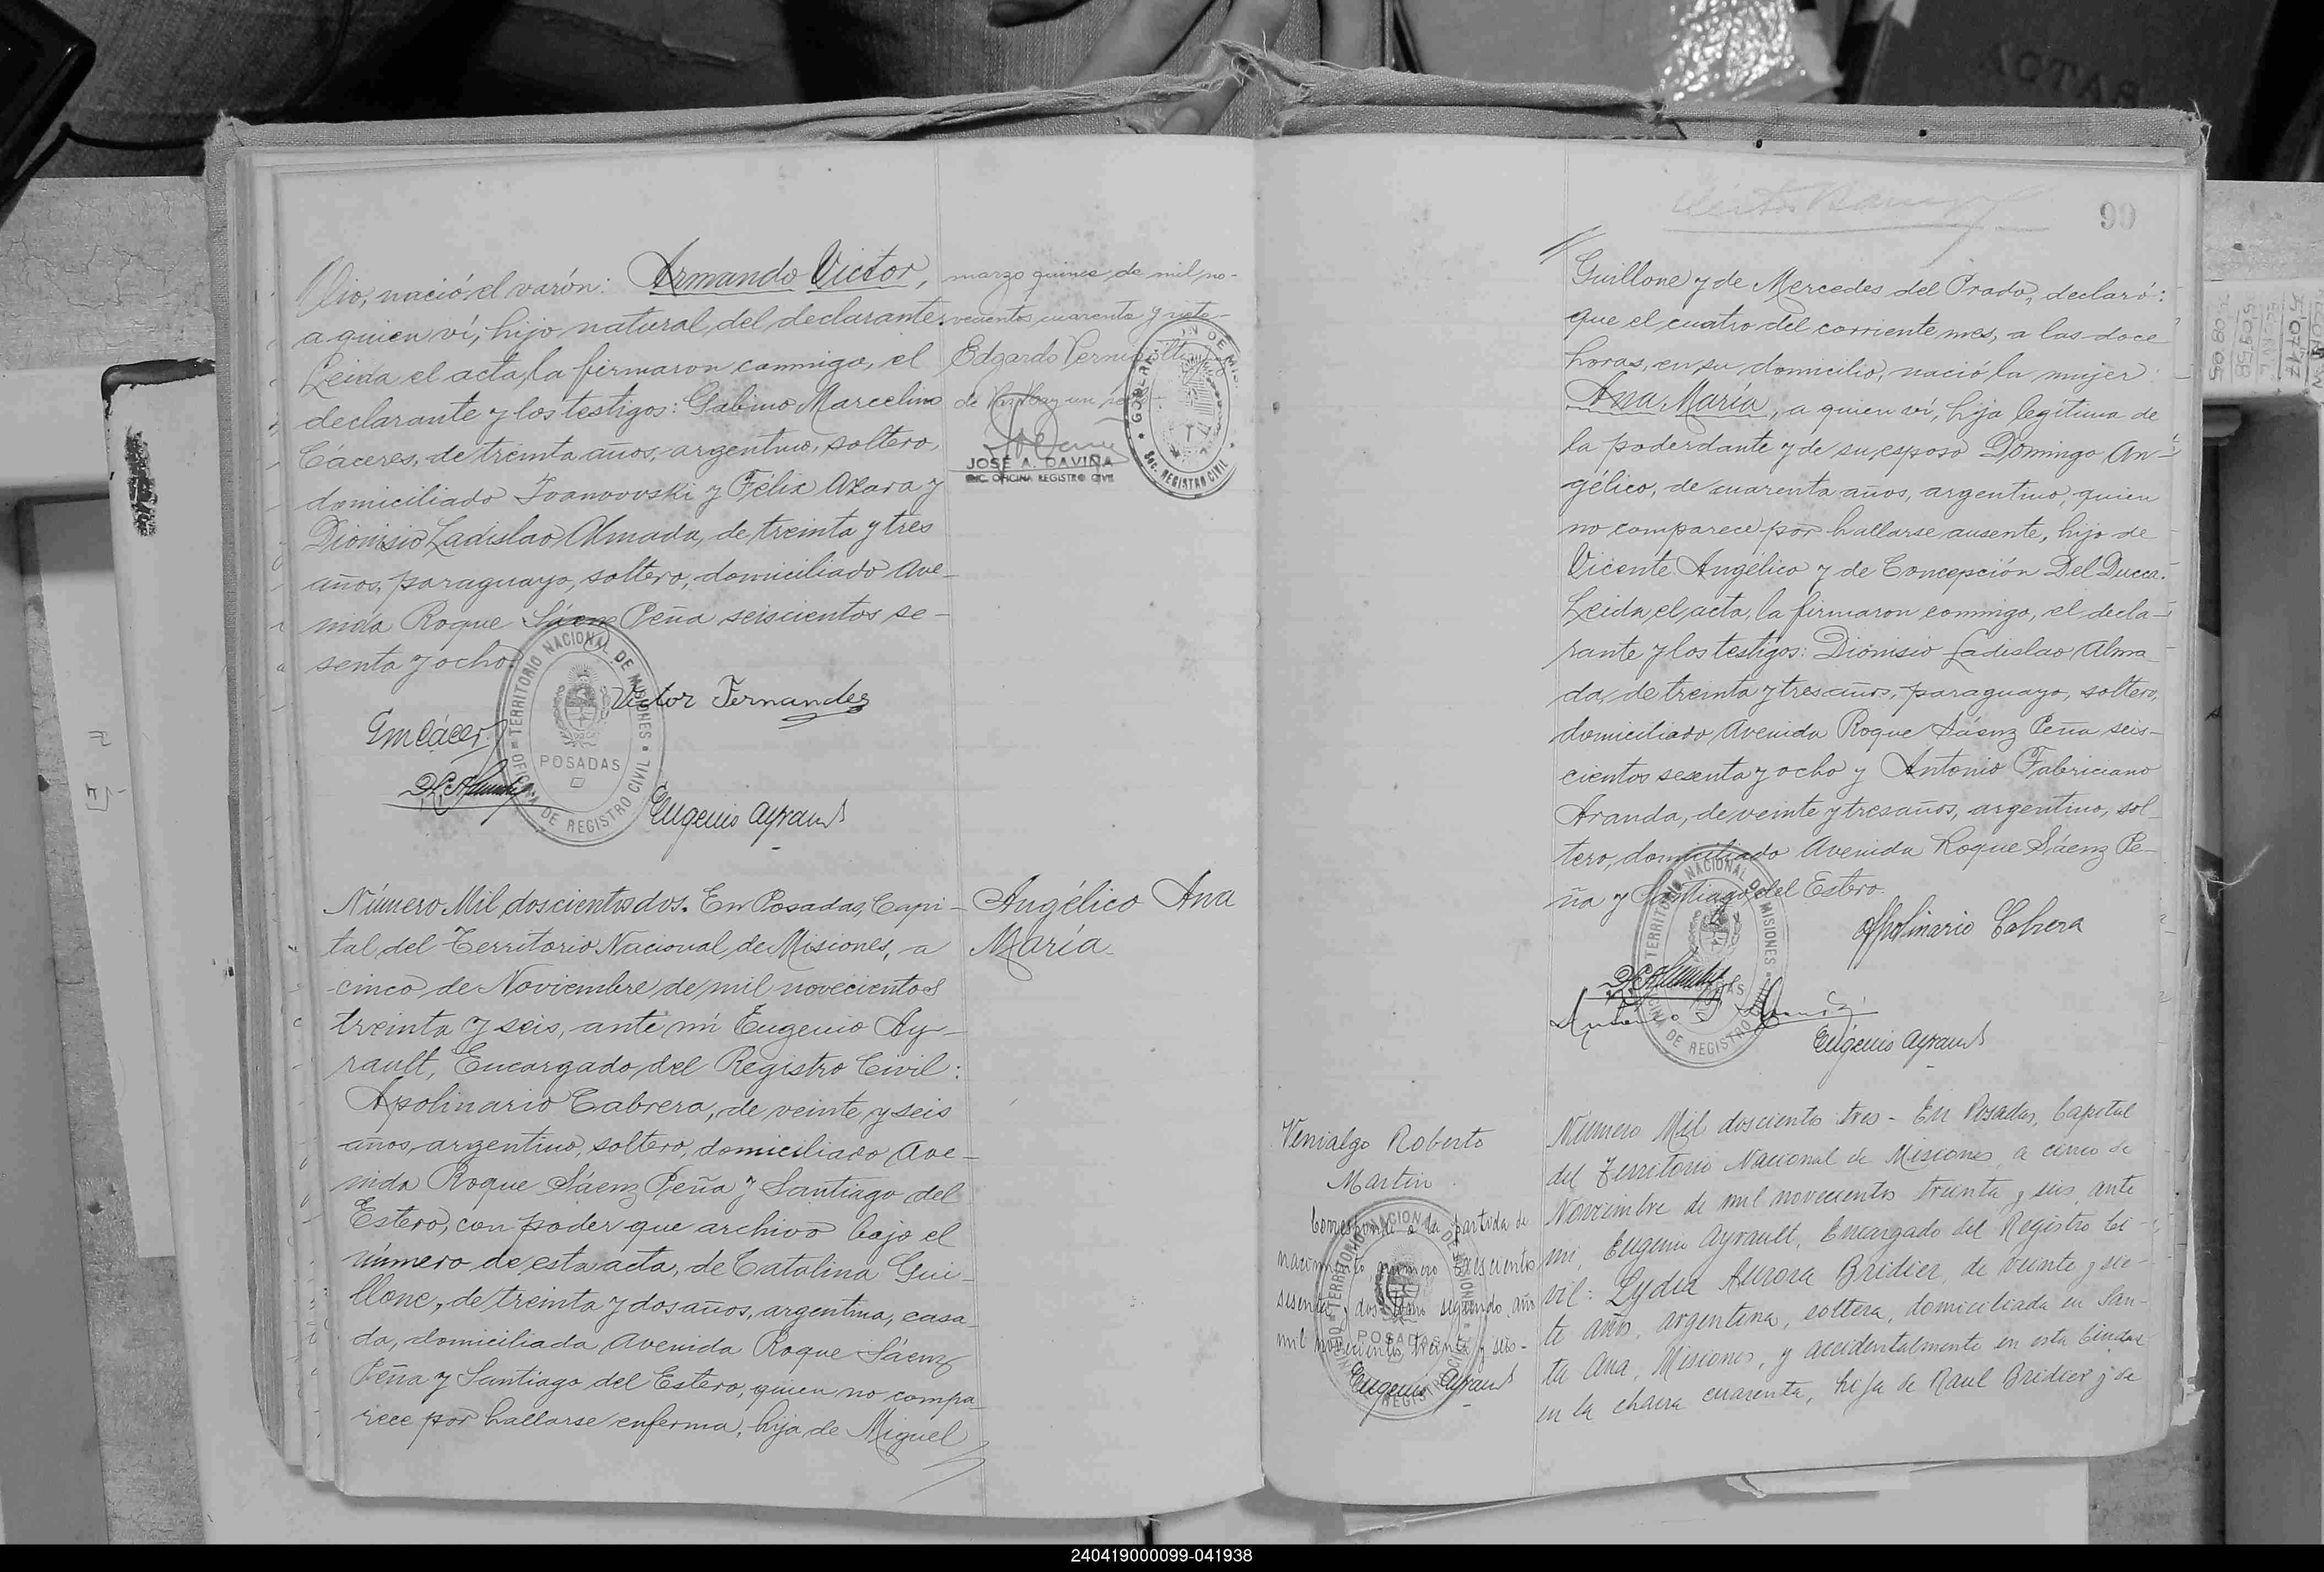 lio, nació el varón: Armando Victor,
a quien ví, hijo natural del declarante.
Leida el acta, la firmaron conmigo, el
declarante y los testigos: Gabino Marcelino
Cáceres, de treinta años, argentino, soltero,
domiciliado Ivanowski y Félix Azara y
Dionisio Ladislao Almada, de treinta y tres
años, paraguayo, soltero, domiciliado Ave-
nida Roque Sáenz Peña seiscientos se-
senta y ocho.
marzo quince de mil no-
vecientos cuarenta y siete-
Edgardo
JOSÉ A. DAVIÑA
ENC. OFICINA REGISTRO CIVIL
SEC. REGISTRO CIVIL
OFICINA DE REGISTRO CIVIL TERRITORIO NACIONAL DE MISIONES
POSADAS
Victor Fernandez
GmCácer
Eugenio Ayrault
Número Mil doscientos dos. En Posadas, Capi-
tal del Territorio Nacional de Misiones, a
cinco de Noviembre de mil novecientos
treinta y seis, ante mí Eugenio Ay-
rault, Encargado del Registro Civil:
Apolinario Cabrera, de veinte y seis
años, argentino, soltero, domiciliado Ave-
nida Roque Sáenz Peña y Santiago del
Estero, con poder que archivo bajo el
número de esta acta, de Catalina Gui-
llone, de treinta y dos años, argentina, casa-
da, domiciliada Avenida Roque Sáenz
Peña y Santiago del Estero, quien no compa-
rece por hallarse enferma, hija de Miguel
Angélico Ana
María
99
Guillone y de Mercedes del Prado, declaró:
que el cuatro del corriente mes, a las doce
horas, en su domicilio, nació la mujer
Ana María, a quien ví, hija legítima de
la poderdante y de su esposo Domingo An-
gélico, de cuarenta años, argentino, quien
no comparece por hallarse ausente, hijo de
Vicente Angélico y de Concepción Del Ducca.
Leida el acta, la firmaron conmigo, el decla-
rante y los testigos: Dionisio Ladislao Alma-
da, de treinta y tres años, paraguayo, soltero,
domiciliado Avenida Roque Sáenz Peña seis-
cientos sesenta y ocho y Antonio Fabriciano
Aranda, de veinte y tres años, argentino, sol-
tero, domiciliado Avenida Roque Sáenz Pe-
ña y Santiago del Estero.
Appolinario Cabrera
OFICINA DE REGISTRO CIVIL TERRITORIO NACIONAL DE MISIONES
POSADAS
Eugenio Ayrault
Venialgo Roberto
Martin
Corresponde a la partida de
nacimiento número trescientos
sesenta y dos tomo segundo, año
mil novecientos treinta y seis-
Eugenio Ayrault
POSADAS
Número Mil doscientos tres - En Posadas, Capital
del Territorio Nacional de Misiones, a cinco de
Noviembre de mil novecientos treinta y seis, ante
mi, Eugenio Ayrault, Encargado del Registro Ci-
vil: Lydia Aurora Bridier, de veinte y sie-
te años, argentina, soltera, domiciliada en San-
ta Ana, Misiones, y accidentalmente en esta Ciudad
en la chacra cuarenta, hija de Raul Bridier y de
240419000099-041938